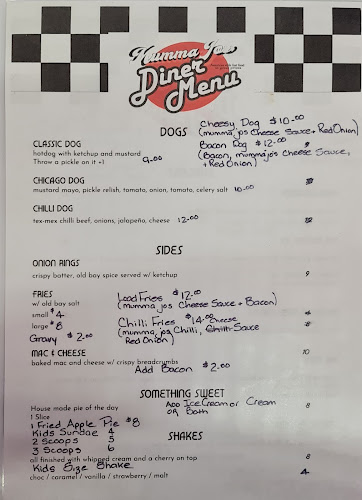 Mumma Jo's
Diner
Menu
DOGS
Cheesy Dog $10.00
(mumma jos Cheese Sauce + Red Onion)
CLASSIC DOG
hotdog with ketchup and mustard
Throw a pickle on it +1 9.00
Bacon Dog $12.00
(Bacon, mumma jos Cheese Sauce,
+ Red Onion)
CHICAGO DOG
mustard mayo, pickle relish, tomato, onion, tomato, celery salt 10.00
CHILLI DOG
tex-mex chilli beef, onions, jalapeño, cheese 12.00
SIDES
ONION RINGS
crispy batter, old bay spice served w/ ketchup 9
FRIES
w/ old bay salt
small $4
large $8
Gravy $2.00
Load Fries $12.00
(mumma jos Cheese Sauce + Bacon)
Chilli Fries $14.00 cheese
(mumma jos Chilli, Sauce
Red Onion)
MAC & CHEESE 10
baked mac and cheese w/ crispy breadcrumbs
Add Bacon $2.00
SOMETHING SWEET
House made pie of the day 8
1 Slice
ADD Ice Cream or Cream
OR Both
1 Fried Apple Pie $8
Kids Sundae 4
2 Scoops 5
3 Scoops 6
SHAKES
all finished with whipped cream and a cherry on top 8
Kids Size Shake 4.
choc / caramel / vanilla / strawberry / malt